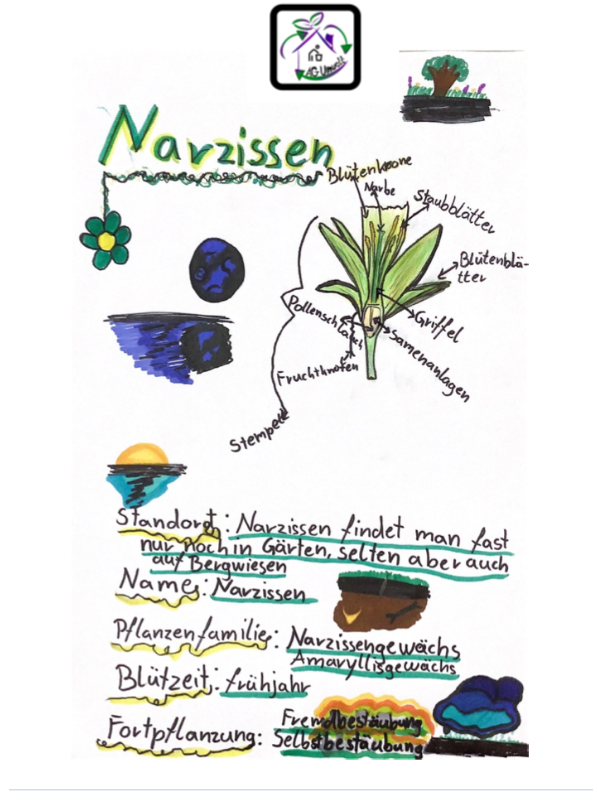 AG Umwelt
Narzissen
Blütenkrone
Narbe
Staubblätter
Blütenblä-
tter
Pollenschlauch
Griffel
Samenanlagen
Fruchtknoten
Stempel
Standort: Narzissen findet man fast
nur noch in Gärten, selten aber auch
auf Bergwiesen
Name: Narzissen
Pflanzenfamilie: Narzissengewächs
Amaryllisgewächs
Blützeit: frühjahr
Fortpflanzung: Fremdbestäubung
Selbstbestäubung